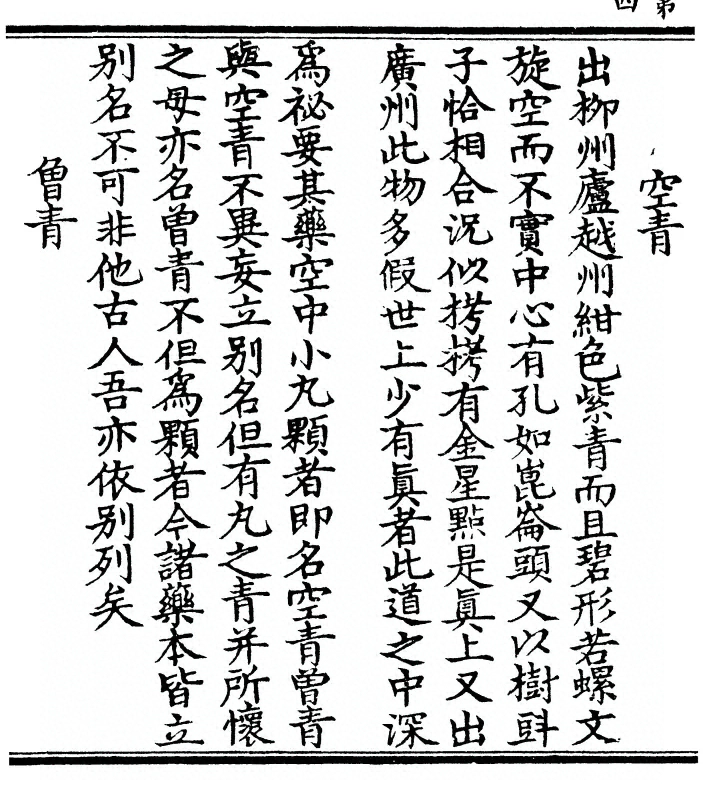 空青
出柳州廬越州紺色紫青而且碧形若螺文
旋空而不實中心有孔如崑崙頭又以樹㪷
子恰相合況似栲栲有金星點是眞上又出
廣州此物多假世上少有眞者此道之中深
爲祕要其藥空中小丸顆者即名空青曽青
與空青不異妄立别名但有丸之青并所懷
之母亦名曽青不但爲顆者今諸藥本皆立
别名不可非他古人吾亦依别列矣
曽青